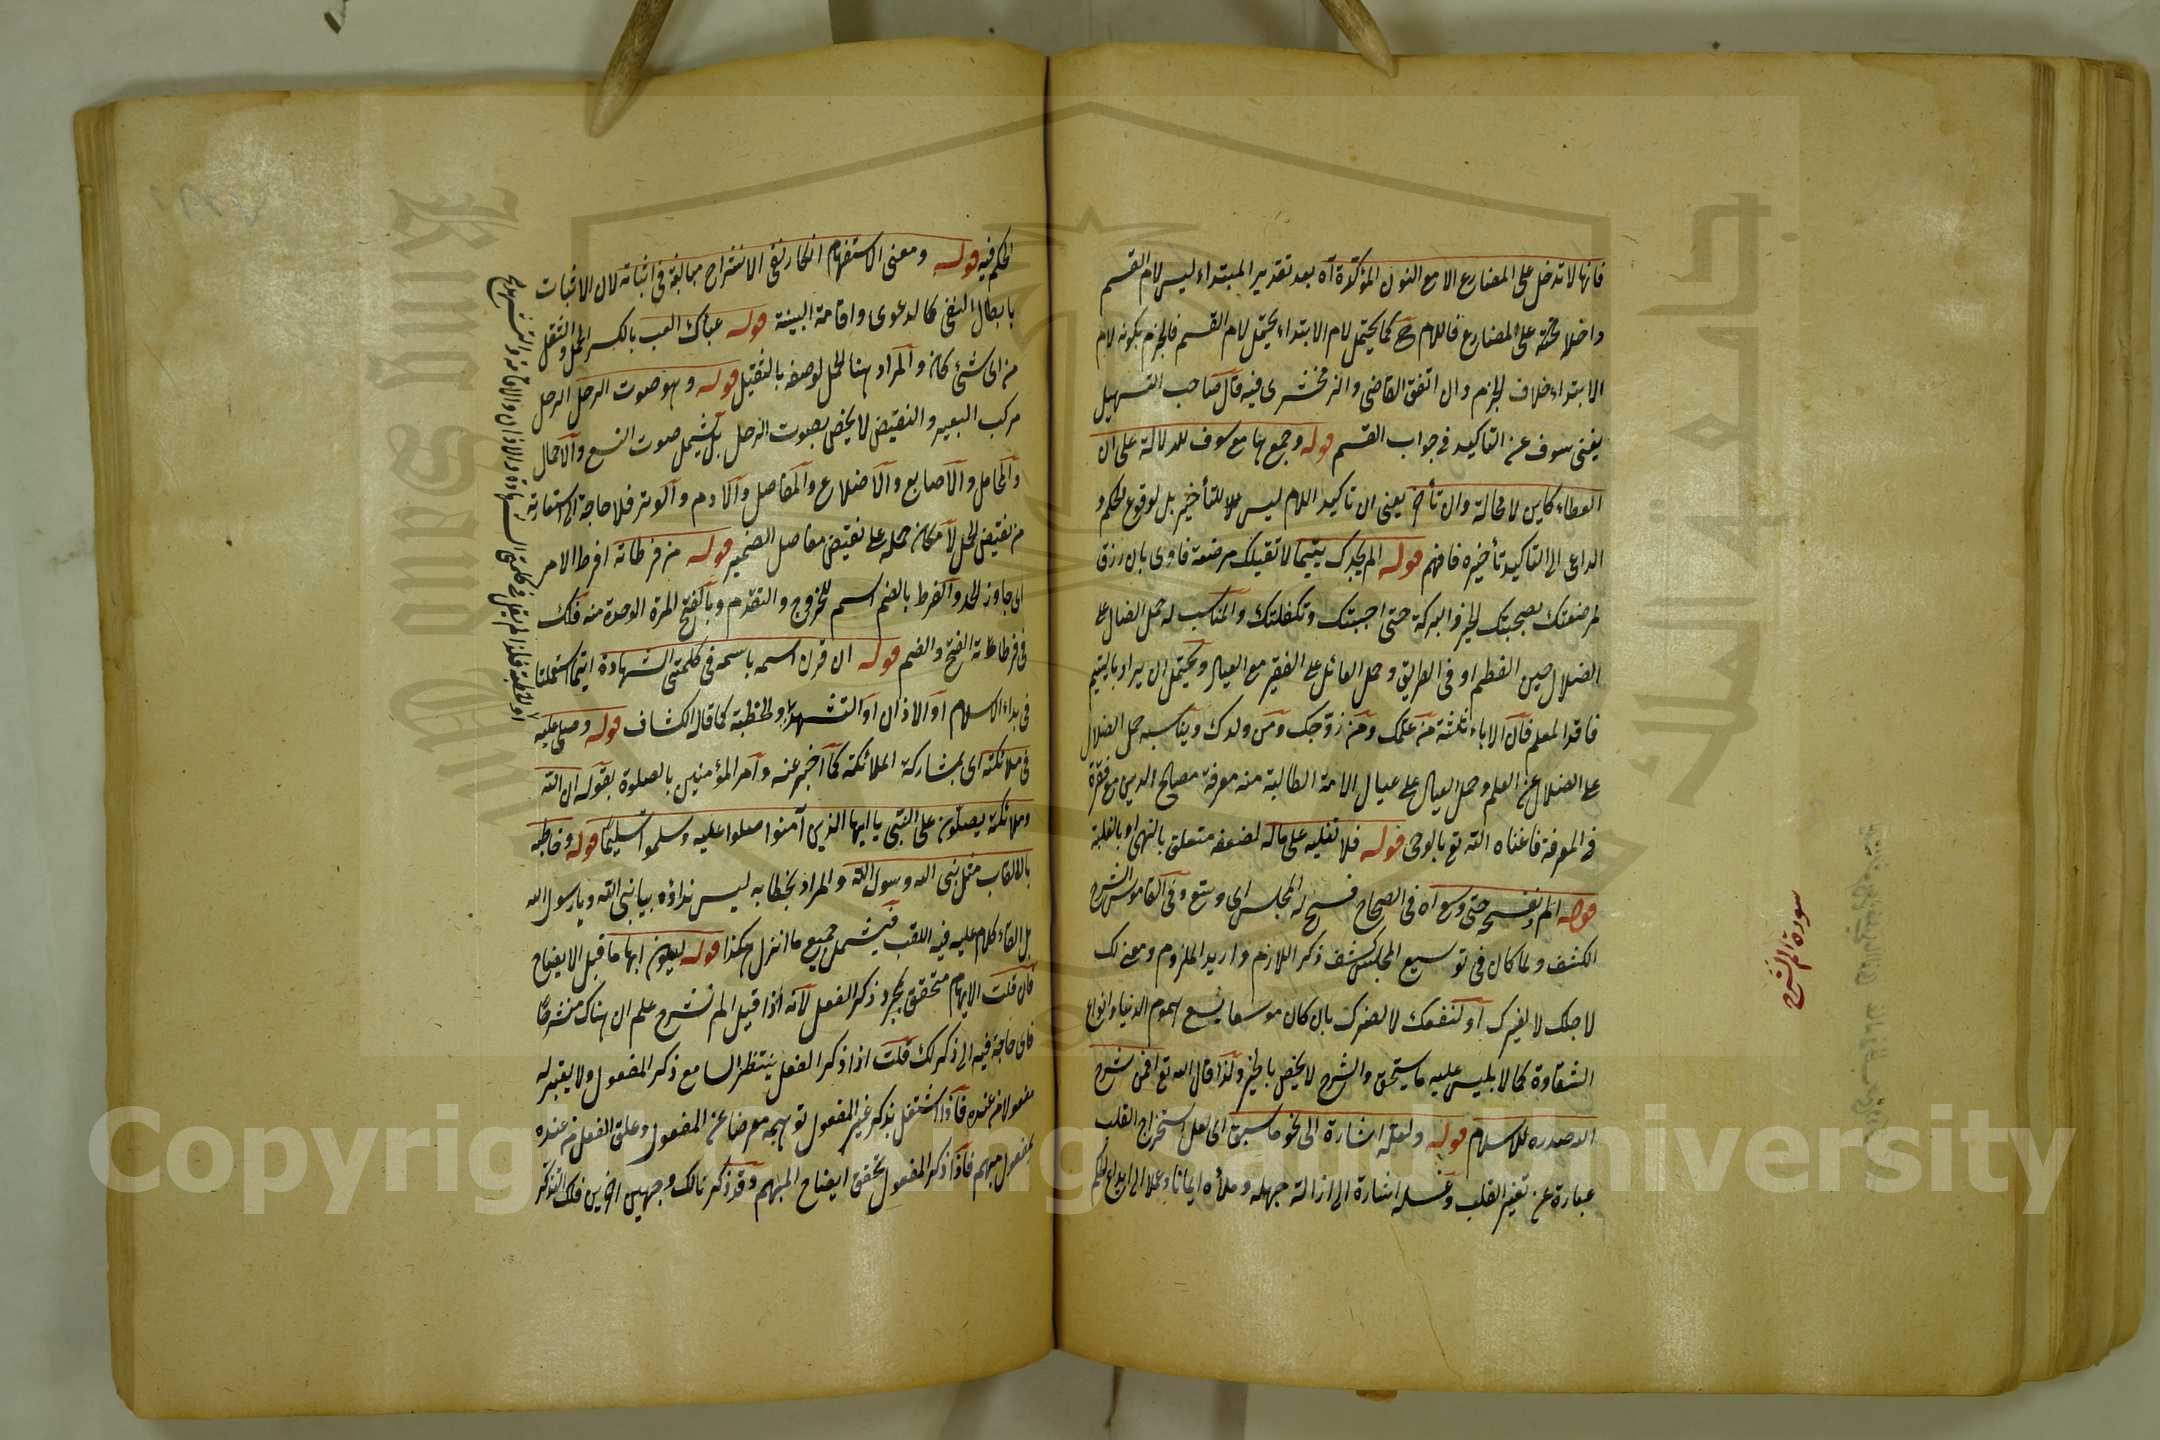 فانها لا تدخل على المضارع الا مع النون المؤكدة آه بعد تقدير المبتداء ليس لام القسم
داخلا حقيقة على المضارع فاللام ح كما يحتمل لام الابتداء يحتمل لام القسم فالجزم بكونه لام
الابتداء خلاف الجزم وان اتفق القاضى والزمخشرى فيه قال صاحب التسهيل
يغنى سوف عن التاكيد فى جواب القسم قوله وجمعها مع سوف للدلالة على ان
العطاء كاين لا محالة وان تأخر يعنى ان تاكيد اللام ليس للتأخير بل لوقوع الحكم و
الداعى الى التاكيد تأخيره فافهم قوله الم يجدك يتيما لا تقبلك مرضعة فاوى بان رزق
لمرضعتك بصحبتك الخير والبركة حتى احبتك وتكفلتك والمناسب له حمل الضال على
الضلال حين الفطم او فى الطريق وحمل العائل على الفقير مع العيال ويحتمل ان يراد باليتيم
فاقد المعلم فان الاباء ثلثة من علمك ومن زوجك ومن ولدك ويناسبه حمل الضلال
على الضلال عن العلم وحمل العيال على عيال الامة الطالبة منه معرفة مصالح الدين مع فقره
فى المعرفة فاغناه الله تع بالوحى قوله فلا تغلبه على ماله لضعفه متعلق بالنهى او بالغلبة
قوله الم نفسحه حتى وسع آه فى الصحاح فسح له المجلس اى وسع وفى القاموس الشرح
الكشف ولما كان فى توسيع المجلس كشف ذكر اللازم واريد الملزوم ومعنى لك
لاجلك لا لغيرك او لنفعك لا لضرك بان كان موسعا يسع هموم الدنيا وانواع
الشقاوة كما لابليس عليه ما يستحق والشرح لا يخص بالخير ولذا قال الله تع افمن شرح
الله صدره للاسلام قوله ولعله اشارة الى نحو ما سبق اى لعل استخراج القلب
عبارة عن تغير القلب وغسله اشارة الى ازالة جهله وملأه ايمانا وعلما الى ايداع الحكم
سورة الم نشرح
الحكم فيه قوله ومعنى الاستفهام انكار نفى الانشراح مبالغة فى اثباته لان الاثبات
بابطال النفى كالدعوى واقامة البينة قوله عبأك العب بالكسر الحمل والثقل
من اى شئ كان والمراد هنا الحمل لوصفه بالثقيل قوله وهو صوت الرحل الرحل
مركب البعير والنقيض لا يخص بصوت الرحل بل يشمل صوت النسع والاحمال
والمحامل والاصابع والاضلاع والمفاصل والادم والوتر فلا حاجة الى استعارته
من نقيض الحمل لامكان حمله على نقيض مفاصل الضمير قوله من فرطاته افرط الامر
اى جاوز الحد والفرط بالضم اسم للخروج والتقدم وبالفتح المرة الوحدة منه فلك
فى فرطاطه الفتح والضم قوله ان قرن اسمه باسمه فى كلمتى الشهادة اينما استعملتا
فى بداء الاسلام او الاذان او التشهد والخطبة كما قاله الكشاف قوله وصلى عليه
فى ملائكته اى بمشاركة الملائكة كما اخبر عنه وامر المؤمنين بالصلوة بقوله ان الله
وملائكته يصلون على النبى يا ايها الذين آمنوا صلوا عليه وسلموا تسليما قوله وخاطبه
بالالقاب مثل نبى الله ورسول الله والمراد بخطابه ليس نداؤه بيا نبى الله ويا رسول الله
بل القاء كلام عليه فيه اللقب فيشمل جميع ما انزل هكذا قوله ليكون ابهاما قبل الايضاح
فان قلت الابهام متحقق بمجرد ذكر الفعل لانه اذا قيل الم نشرح علم ان هناك منشرحا
فاى حاجة فيه الى ذكر لك قلت اذا ذكر الفعل ينتظر السامع ذكر المفعول ولا يعتبر له
مفعولا من عنده فاذا اشتغل بذكر غير المفعول توهمه معرضا عن المفعول وعلق الفعل من عنده
بمفعول مبهم فاذا ذكر المفعول تحقق ايضاح المبهم وقد ذكر نالك وجهين اخرين فلك التذكر